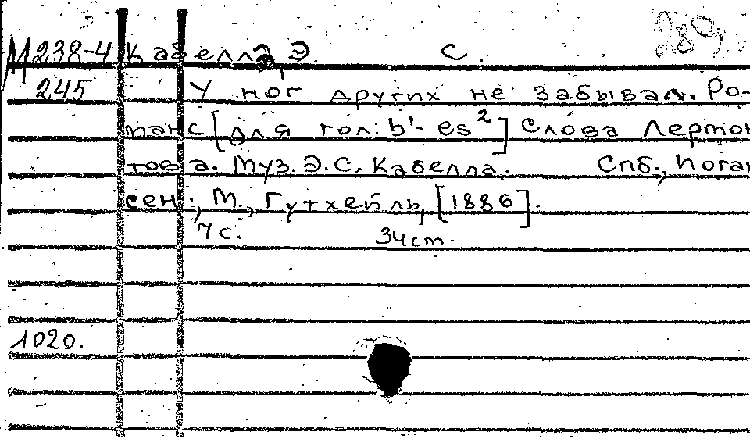 М 238-4 Кавелла, Э. С. 289
245 У ног других не забывал. Ро-
манс [для гол: b¹- es²] Слова Лермон
това. Муз. Э. С. Кавелла. Спб., Иоган
сен; М., Гутхейль, [1886].
7 с. 34 cm.
1020.